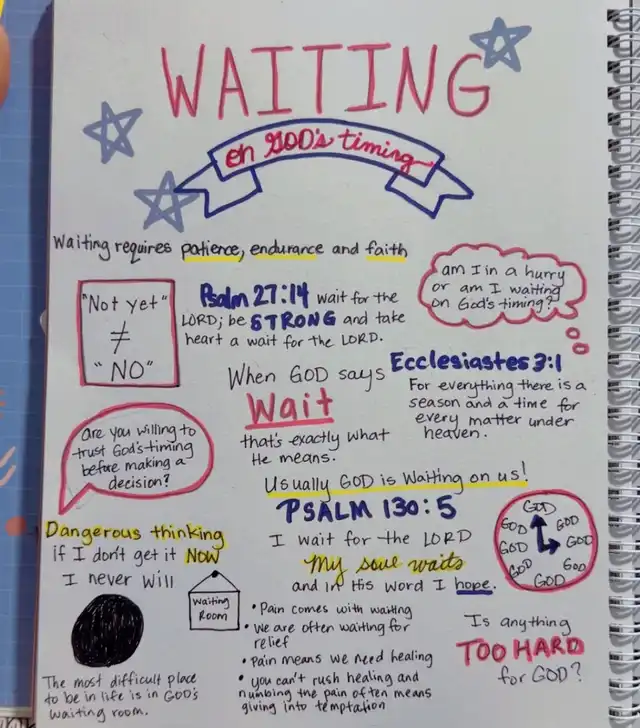 WAITING
on GOD's timing
Waiting requires patience, endurance and faith
"Not yet"
≠
"NO"
Psalm 27:14 wait for the
LORD; be STRONG and take
heart a wait for the LORD.
am I in a hurry
or am I waiting
on God's timing?
When GOD says
Wait
that's exactly what
He means.
Ecclesiastes 3:1
For everything there is a
season and a time for
every matter under
heaven.
Are you willing to
trust God's timing
before making a
decision?
Usually GOD is waiting on us!
PSALM 130:5
I wait for the LORD
My soul waits
and in His word I hope.
GOD
GOD
GOD
GOD
GOD
GOD
GOD
GOD
Dangerous thinking
if I don't get it NOW
I never will
Waiting
Room
• Pain comes with waiting
• We are often waiting for
relief
• Pain means we need healing
• you can't rush healing and
numbing the pain often means
giving into temptation
Is anything
TOO HARD
for GOD?
The most difficult place
to be in life is in GOD's
waiting room.